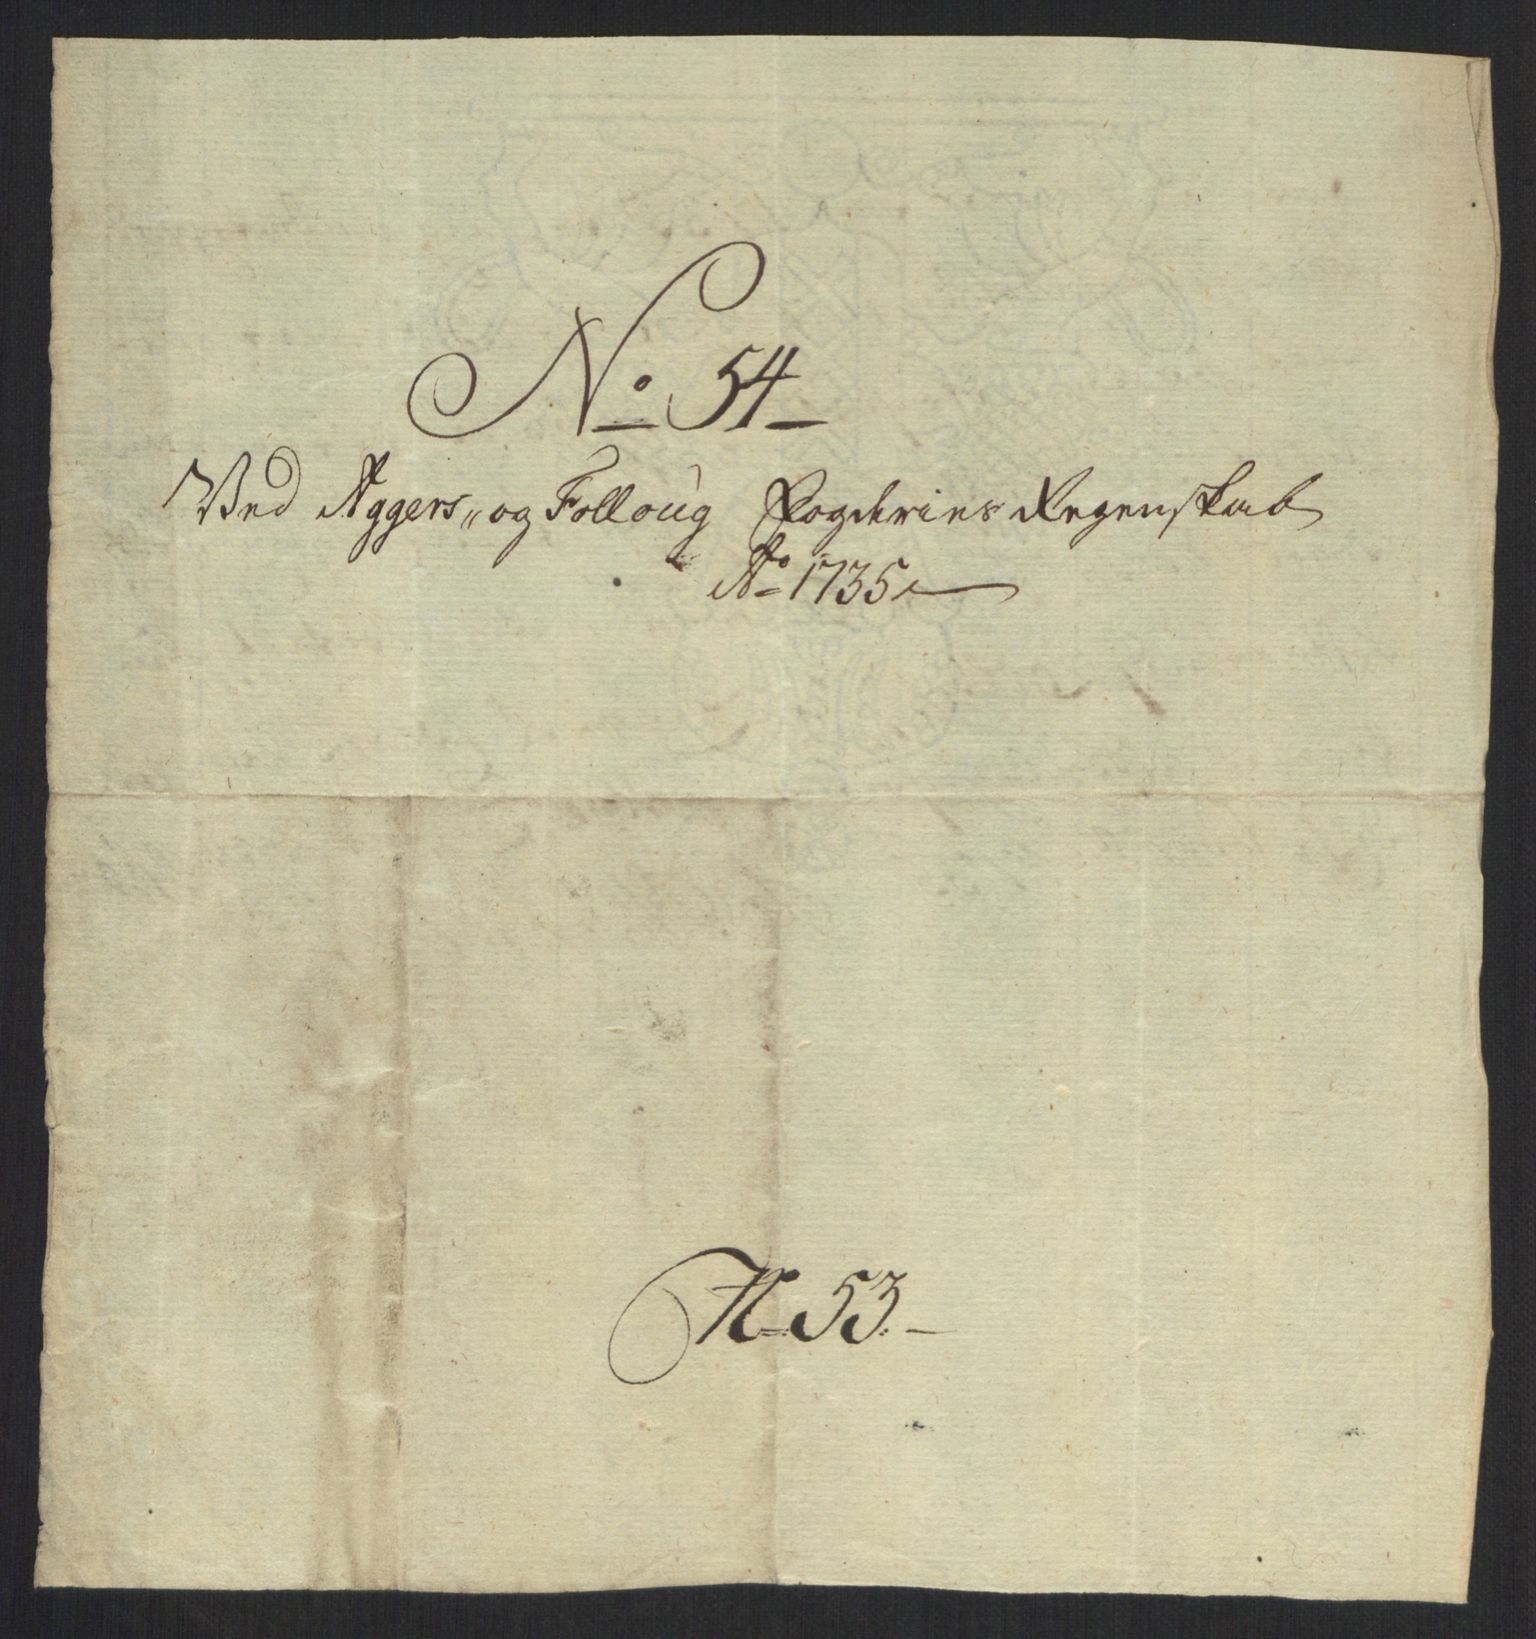 No: 54
Ved Aggers„ og Folloug Fogderies Regenskab
Ao 1735
No: 53.